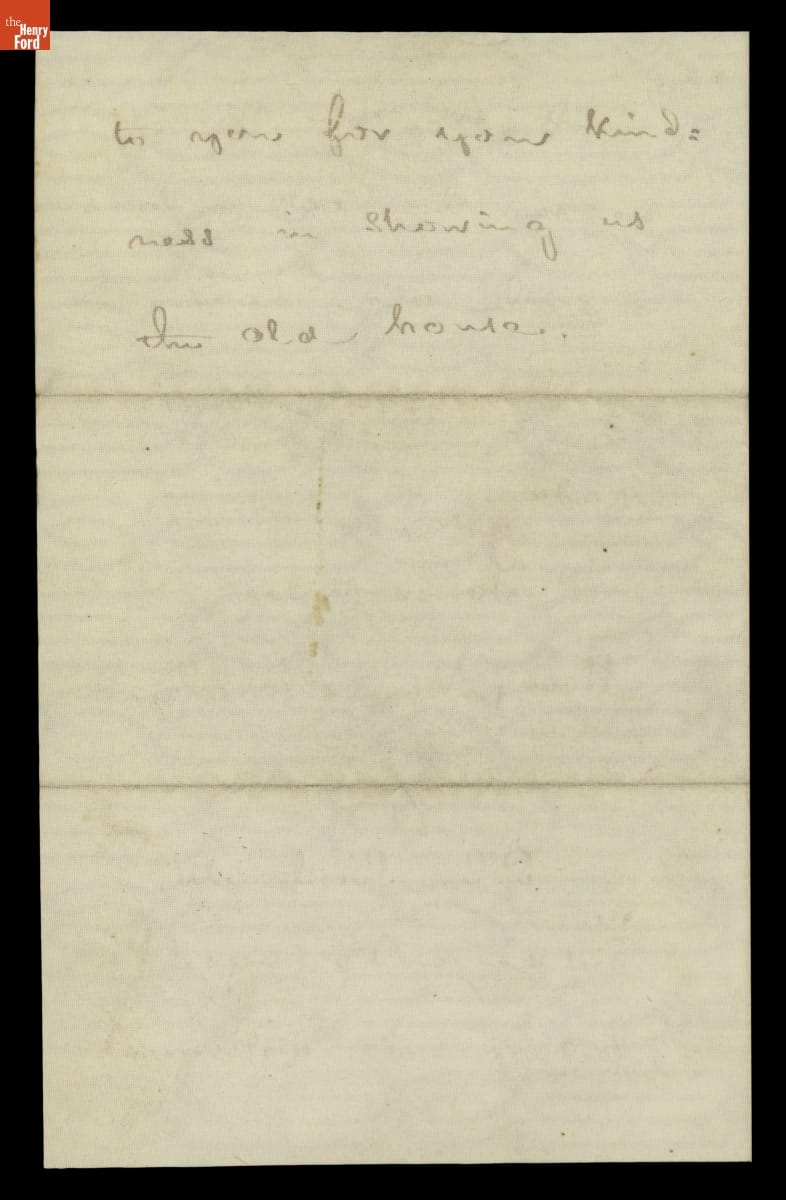 the
Henry
Ford
to you for your kind=
ness in showing us
the old house..